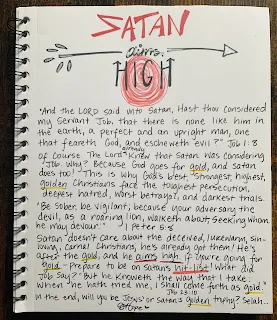 SATAN
aims
HIGH
"And the LORD said unto Satan, Hast thou considered
my Servant Job, that there is none like him in
the earth, a perfect and an upright man, one
that feareth God, and escheweth evil?" Job 1:8
Of course The Lord already knew that Satan was considering
Job. Why? Because God goes for gold, and satan
does too! This is why God's best, strongest, highest,
golden Christians face the toughest persecution,
deepest hatred, worst betrayal, and darkest trials.
"Be sober, be vigilant; because your adversary the
devil, as a roaring lion, walketh about, seeking whom
he may devour:" 1 Peter 5:8
Satan doesn't care about the deceived, lukewarm, sin-
loving, carnal Christians, he's already got them! He's
after the gold, and he aims high. If you're going for
gold - prepare to be on satan's hit-list! What did
Job say? "But he knoweth the way that I take:
when he hath tried me, I shall come forth as gold."
Job 23:10
In the end, will you be Jesus' or Satan's golden trophy? Selah...